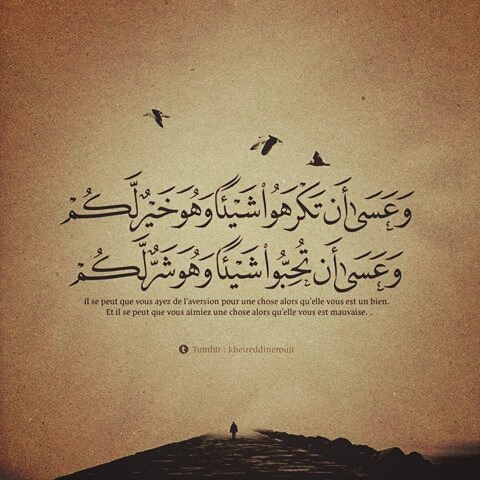 وَعَسَىٰٓ أَن تَكْرَهُوا۟ شَيْـًٔا وَهُوَ خَيْرٌ لَّكُمْ
وَعَسَىٰٓ أَن تُحِبُّوا۟ شَيْـًٔا وَهُوَ شَرٌّ لَّكُمْ
il se peut que vous ayez de l'aversion pour une chose alors qu'elle vous est un bien.
Et il se peut que vous aimiez une chose alors qu'elle vous est mauvaise. .
t Tumblr : kheireddinerouji